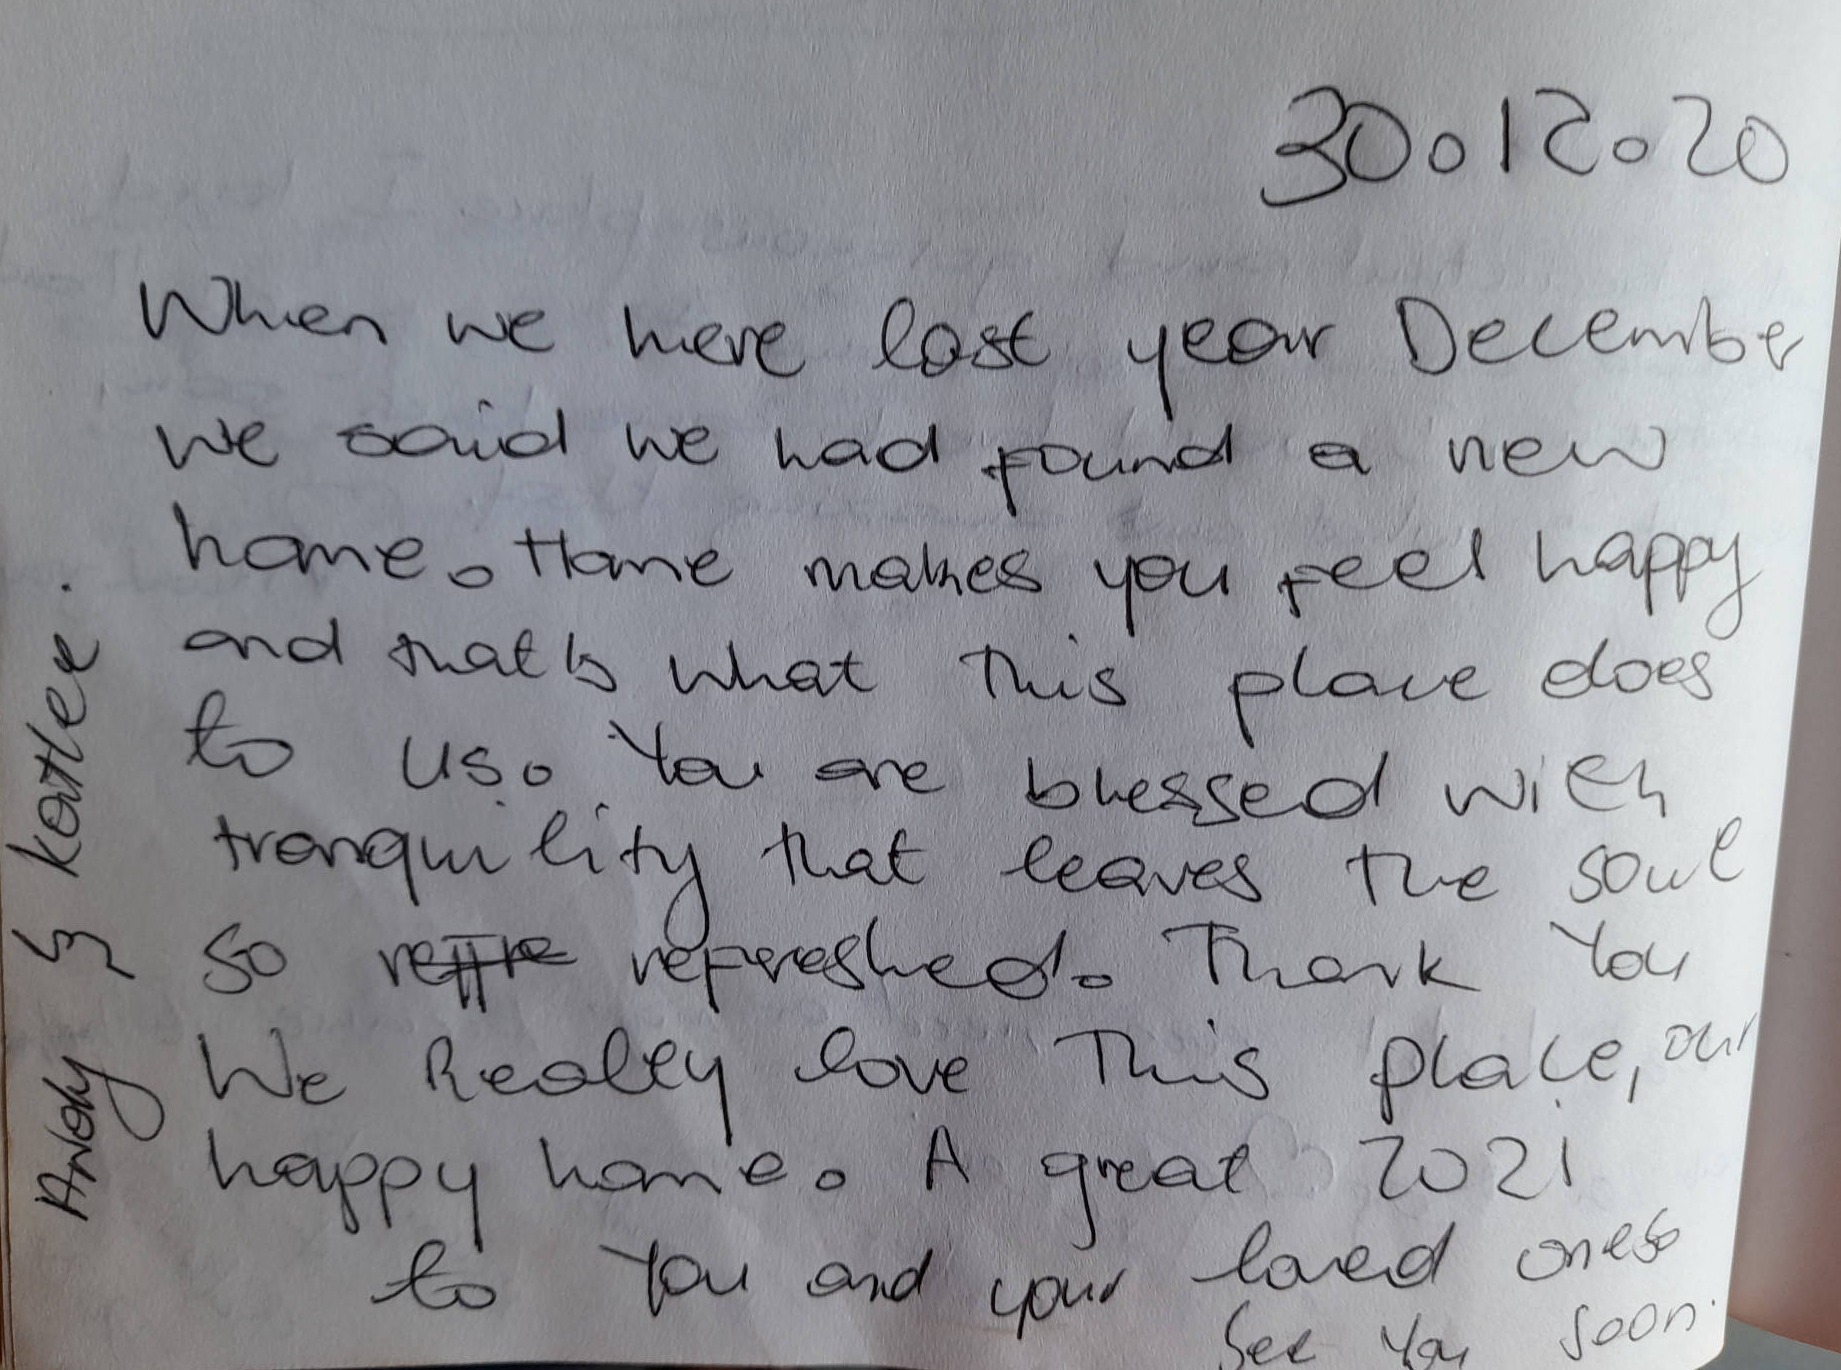 30.12.20
When we here last year December
we said we had found a new
home. Home makes you feel happy
and that's what this place does
to us. You are blessed with
tranquility that leaves the soul
so refreshed. Thank You
We Really love This place, our
happy home. A great 2021
to You and your loved ones.
See You soon.
Andy &